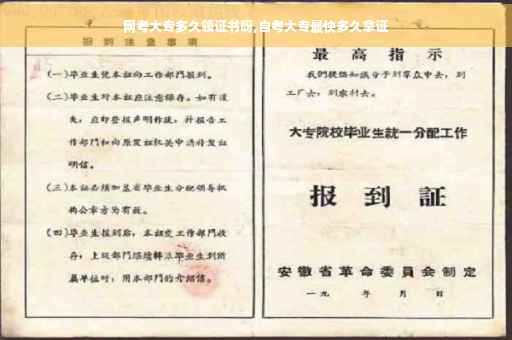 网考大专多久领证书呀,自考大专最快多久拿证
报到注意事项
(一)毕业生凭本证向工作部门报到。
(二)毕业生对本证应注意保存。如有遗
失,应即登报声明作废,并报告工
作部门和向原发证机关申请补发证
明信。
(三)本证必须加盖省毕业生分配领导机
构公章方为有效。
(四)毕业生报到后,本证交工作部门收
存;上级部门
毕业生到所
属单位时,用本部门的介绍信。
最高指示
我们提倡知识分子到群众中去,到
工厂去,到农村去。
大专院校毕业生统一分配工作
报到证
安徽省革命委员会制定
一九 年 月 日